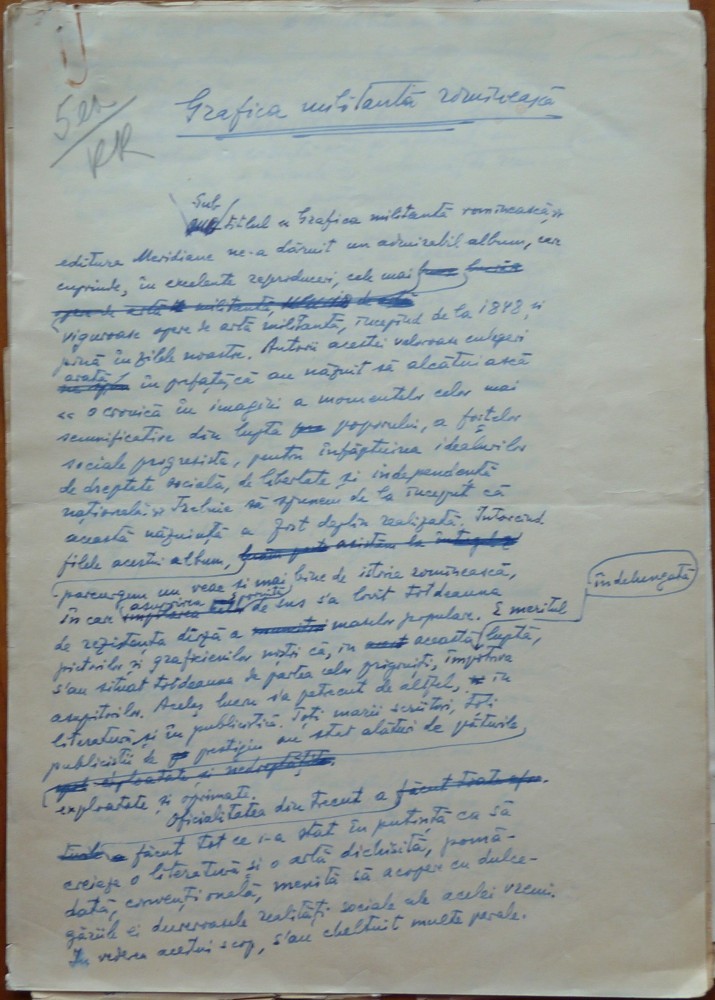 Grafica militantă romînească
Sub
titlul « Grafica militantă romînească »
editura Meridiane ne-a dăruit un admirabil album, care
cuprinde, în excelente reproduceri, cele mai
opere de artă militantă,
viguroase opere de artă militantă, începînd de la 1848, și
pînă în zilele noastre. Autorii acestei valoroase culegeri
arată în prefață, că au năzuit să alcătuiască
« o cronică în imagini a momentelor celor mai
semnificative din lupta poporului, a forțelor
sociale progresiste, pentru înfăptuirea idealurilor
de dreptate socială, de libertate și independență
națională » Trebuie să spunem de la început că
această năzuință a fost deplin realizată. Întorcînd
filele acestui album,
parcurgem un veac și mai bine de istorie romînească,
în care asuprirea de sus s'a lovit totdeauna
îndelungată
de rezistența dîrză a maselor populare. E meritul
pictorilor și graficienilor noștri că, în această luptă,
s'au situat totdeauna de partea celor prigoniți, împotriva
asupritorilor. Același lucru s'a petrecut de altfel, în
literatură, și în publicistică. Toți marii scriitori, toți
publiciștii de prestigiu au stat alături de păturile
exploatate și nedreptățite
exploatate și oprimate.
Oficialitatea din trecut a
făcut tot ce i-a stat în putință ca să
creieze o literatură și o artă dichisită, pomă-
dată, convențională, menită să acopere cu dulce-
găriile ei dureroasele realități sociale ale acelei vremi.
In vederea acestui scop, s'au cheltuit multe parale.